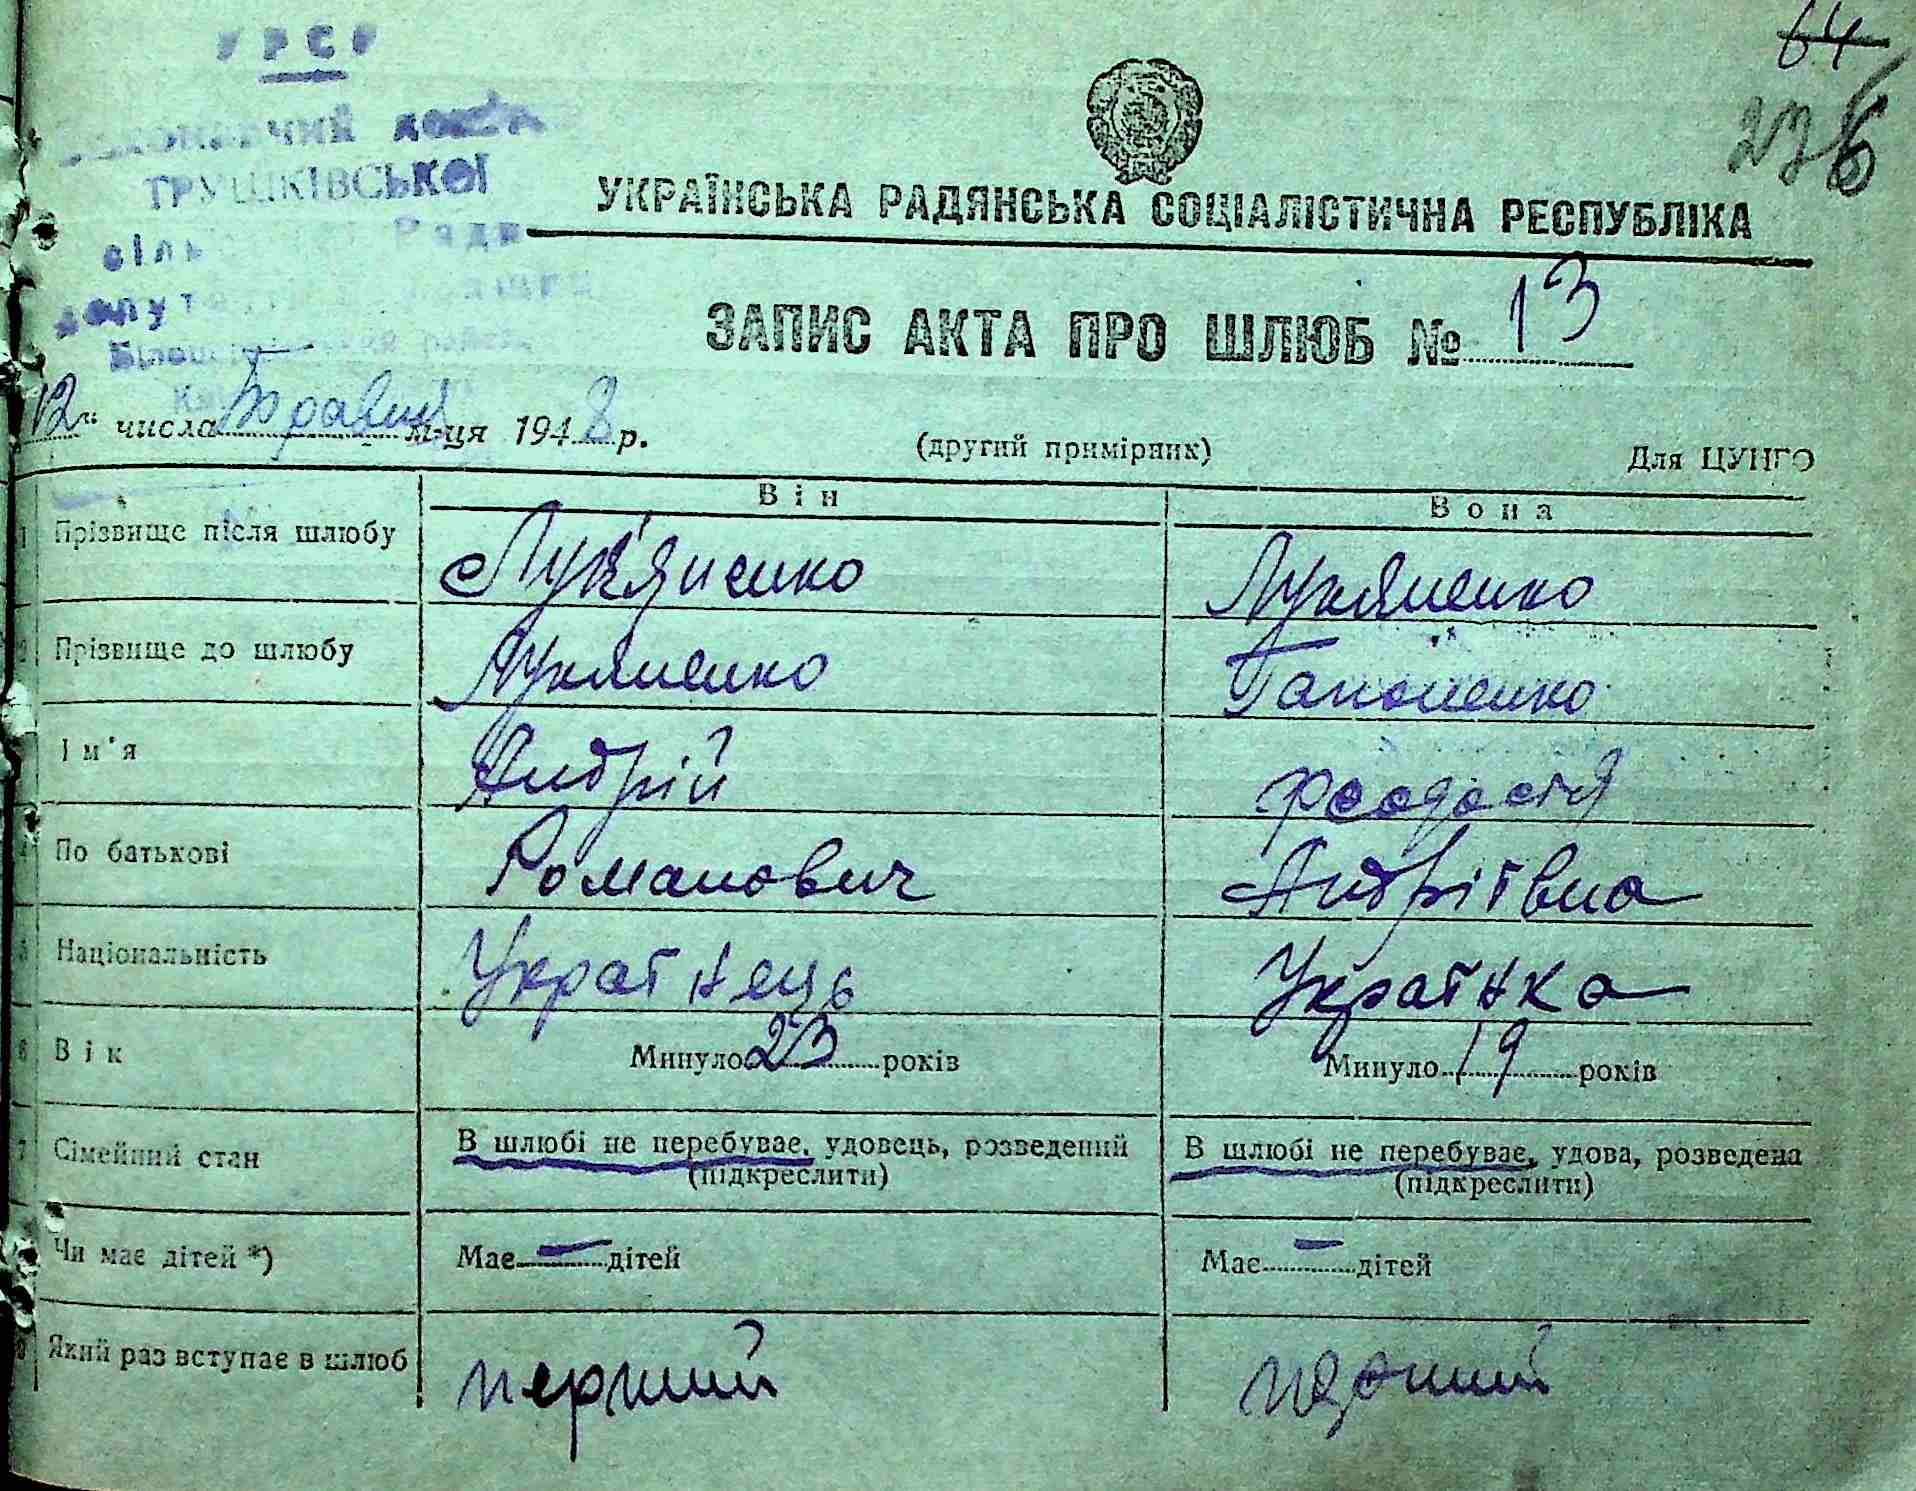 УРСР
ТРУШКІВСЬКОЇ
Ради
64
236
УКРАЇНСЬКА РАДЯНСЬКА СОЦІАЛІСТИЧНА РЕСПУБЛІКА
ЗАПИС АКТА ПРО ШЛЮБ № 13
12 " числа Травня м-ця 1948 р.
(другий примірник)
Для ЦУНГО
Він
Вона
1 Прізвище після шлюбу Лук'яненко Лукяненко
2 Прізвище до шлюбу Лукяненко Гапоненко
Ім'я Андрій Феодосія
4 По батькові Романович Андріївна
5 Національність Українець Українка
6 Вік Минуло 23 років Минуло 19 років
7 Сімейний стан В шлюбі не перебуває, удовець, розведений В шлюбі не перебуває, удова, розведена
(підкреслити) (підкреслити)
Чи має дітей *) Має — дітей Має — дітей
9 Який раз вступає в шлюб перший